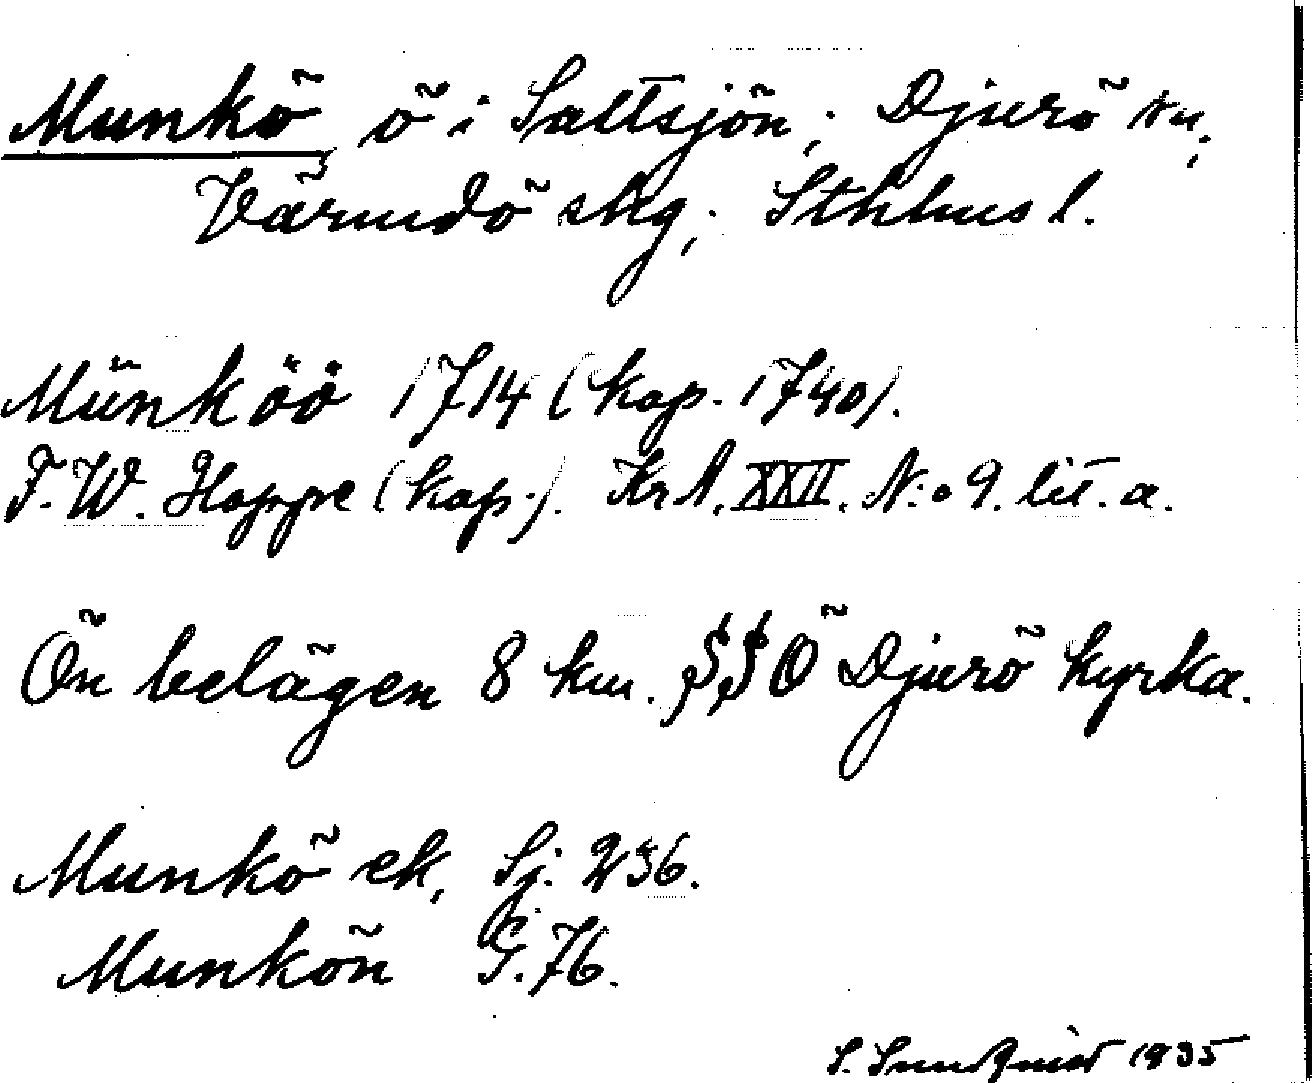 Munkö, ö i Saltsjön; Djurö sn;
Värmdö skg; Sthlms l.
Münköö 1714 (kop. 1740).
F. W. Hoppe (kop.). Kr A. XXII. N:o 9. lit. a.
Ön belägen 8 km. SSÖ Djurö kyrka.
Munkö ek, Sj. 236.
Munkön G. 76.
S. Sundqvist 1935